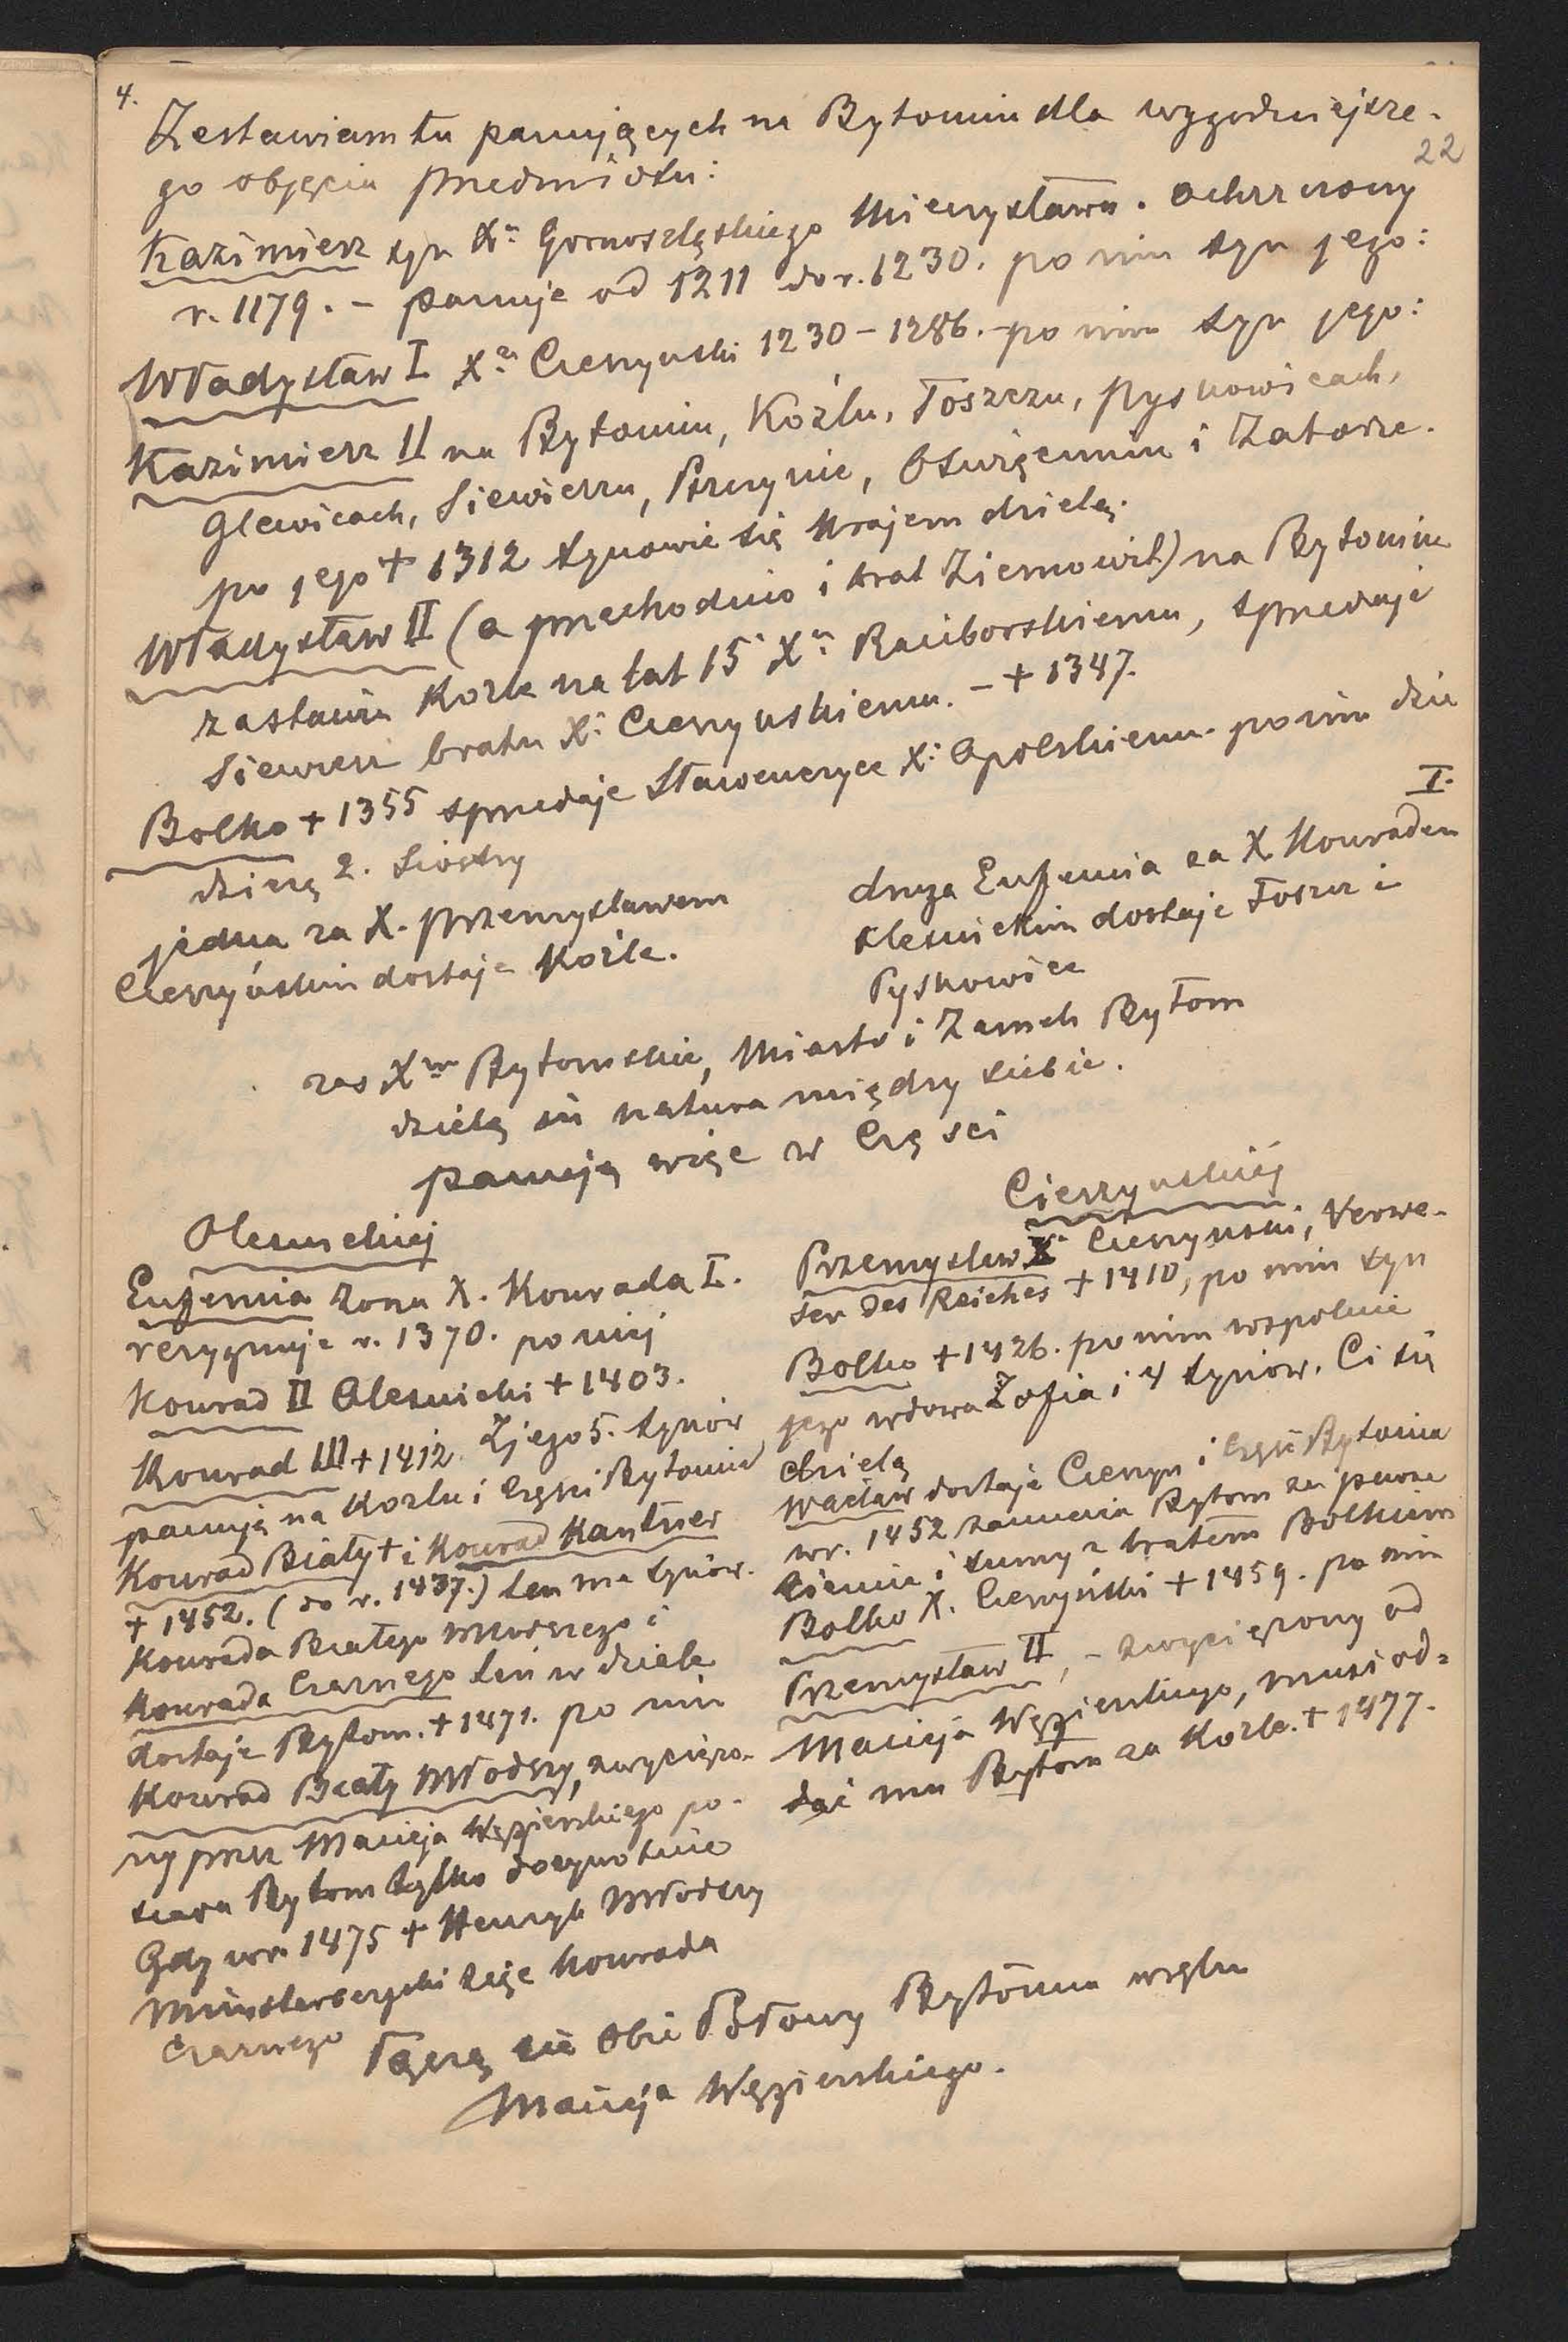 4.
22
Zestawiam tu panujących na Bytomiu dla wygodniejsze-
go objęcia przedmiotu:
Kazimierz syn Xa Gornoszląskiego Mieczysława. ochrzczony
r. 1179. – panuje od 1211 do r. 1230. po nim syn jego:
Władysław I Xe Cieszynski 1230 – 1286. – po nim syn jego:
Kazimierz II na Bytomiu, Koźlu, Toszczu, Pyskowicach,
Glewicach, Siewierzu, Pszczynie, Oświęcimiu i Zatorze.
po jego + 1312 synowie się krajem dzielą.
Władysław II (a przechodnio i brat Ziemowit) na Bytomiu
zastawia Kozle na lat 15 Xu Raciborskiemu, sprzedaje
Siewierz bratu X: Cieszynskiemu. – + 1347.
Bolko + 1355 sprzedaje Sławencyce X: Opolskiemu. po nim dzie
dziczą 2. Siostry
jedna za X. Przemysławem
Cieszyńskim dostaje Koźle.
I.
druga Eufemia za X Konradem
Olesnickim dostaje Toszcz i
Pyskowice
zas Xwo Bytomskie, Miasto i Zamek Bytom
dzielą in natura między siebie.
panują więc w Części
Olesnickiej
Eufemia żona X. Konrada I.
rezygnuje r. 1370. po niej
Konrad II Olesnicki + 1403.
Konrad III + 1412. Z jego 5. synów
panują na Kozlu i części Bytomia
Konrad Biały + i Konrad Kantner
+ 1452. (do r. 1437.) ten ma synów.
Konrada Białego młodszego i
Konrada Czarnego ten w dziele
dostaje Bytom. + 1471. po nim
Konrad Biały Młodszy, zwyciężo-
ny przez Macieja Węgierskiego po-
siada Bytom tylko dożywotnie
Gdy w r. 1475 + Henryk Młodszy
Münsterbergski zięć Konrada
Czarnego
Cieszynskiej
Przemysław X: Cieszynski, Verwe-
ser des Reiches + 1410, po nim syn
Bolko + 1426. po nim wspolnie
jego wdowa Zofia i 4 synow. Ci się
dzielą
Wacław dostaje Cieszyn i część Bytomia
w r. 1452 zamienia Bytom za pewne
ziemie i sumy z bratem Bolkiem
Bolko X. Cieszyński + 1459. po nim
Przemysław II, – zwyciężony od
Macieja Węgierskiego, musi od-
dać mu Bytom za Kozle. + 1477.
Łączą się obie Połowy Bytomia w ręku
Macieja Węgierskiego.